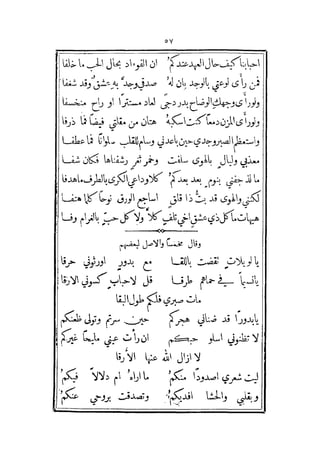 ٥٧
احبابنا كيف حال العهد عندكم ان الفواد بحال الحب ما خلفا
فمن رأى لوعتي بالوجد بان له صدقي وجد به عشق وقد شغفا
ولو رأى وجهك الوضاح بدر دجى لعاد مستترا او راح منخسفا
ولو رأى المزن دمعا كنت اسكبه هتان من مقلتي فيضا فما ذرفا
واستعظم الصبر وجدي حين باعدني وسام للقلب سلوانا فما عطفا
معذبي وليال بالهوى سلفت وخمر ثغر رشفناها فكان شفا
ما لذ جفني بنوم بعد بعدكم كلا وداعي الكرى بالطرف ما هدفا
لكنني والهوى قد بت ذا قلق اساجع الورق نوحا كلما هتفا
هيهات ما كل ذي عشق اخي تلف كلا ولا كل حب بالغرام وفا
وقال مخمسا والاصل لبعضهم
يا لويلات تقضت باللقا مع بدور اورثوني حرقا
يا نسيما في حماهم طرقا قل لاحباب كسوني الارقا
مات صبري فلكم طول البقا
يا بدورا قد ضناني هجركم حين سرتم وتولى ظعنكم
لا تظنوني اسلو حبكم ان رأت عيني مليحا غيركم
لا ازال الله عنها الأرقا
ليت شعري اصدودا منكم ما اراه ام دلالا فيكم
وبقلبي والحشا افديكم وتصدقت بروحي عنكم